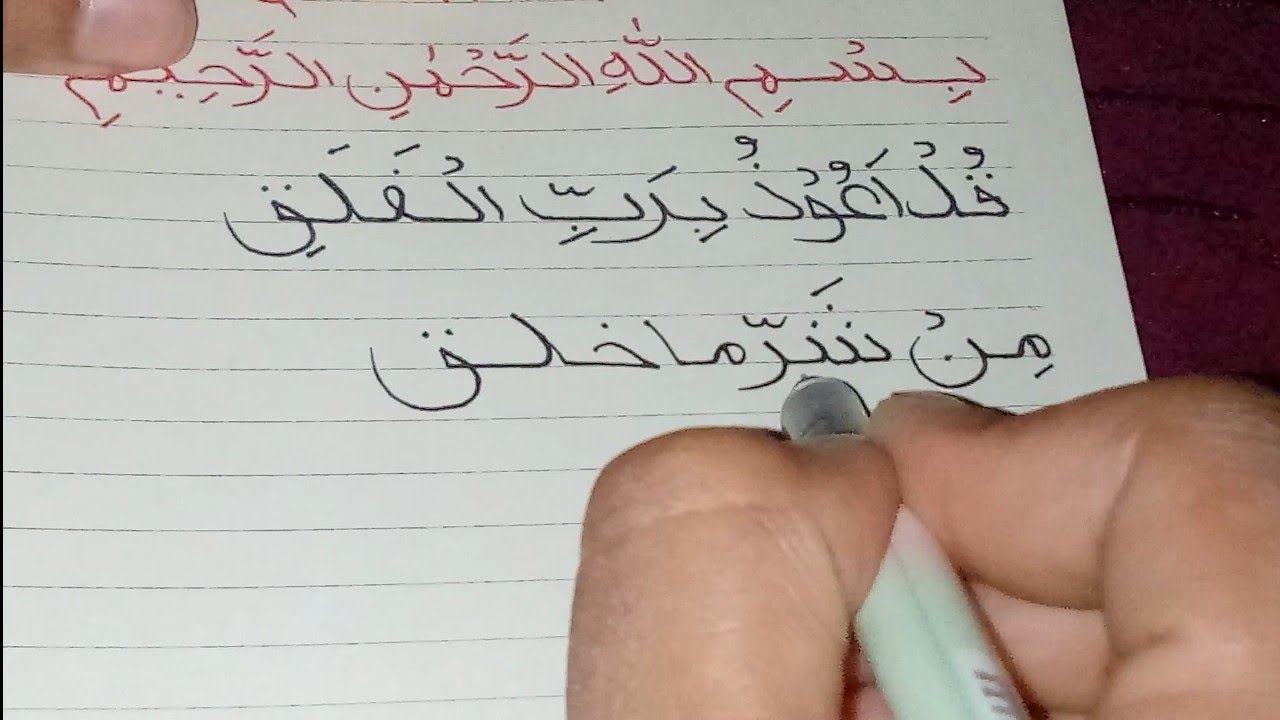 بِسْمِ اللّٰهِ الرَّحْمٰنِ الرَّحِيمِ
قُلْ اَعُوْذُ بِرَبِّ الْفَلَقِ
مِنْ شَرِّ ما خلق